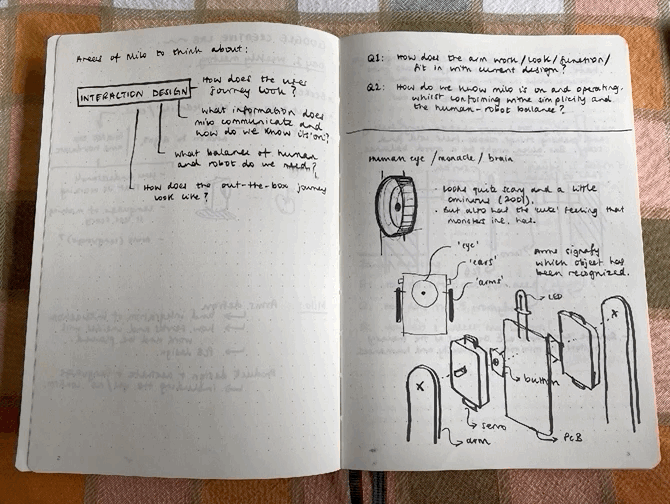 Areas of Milo to think about:
INTERACTION DESIGN
How does the user
journey look?
What information does
milo communicate and
how do we know it's on?
What balance of human
and robot do we need?
How does the out-the-box journey
look like?
2
Q1: How does the arm work/look/function/
fit in with current design?
Q2: How do we know milo is on and operating,
whilst conforming to the simplicity and
the human-robot balance?
Human eye/monacle/brain
• Looks quite scary and a little
ominous (2001).
• But also has the 'cute' feeling that
monsters inc. has.
'eye'
'ears'
'arms'
Arms signify
which object has
been recognized.
LED
button
servo
arm
PCB
3